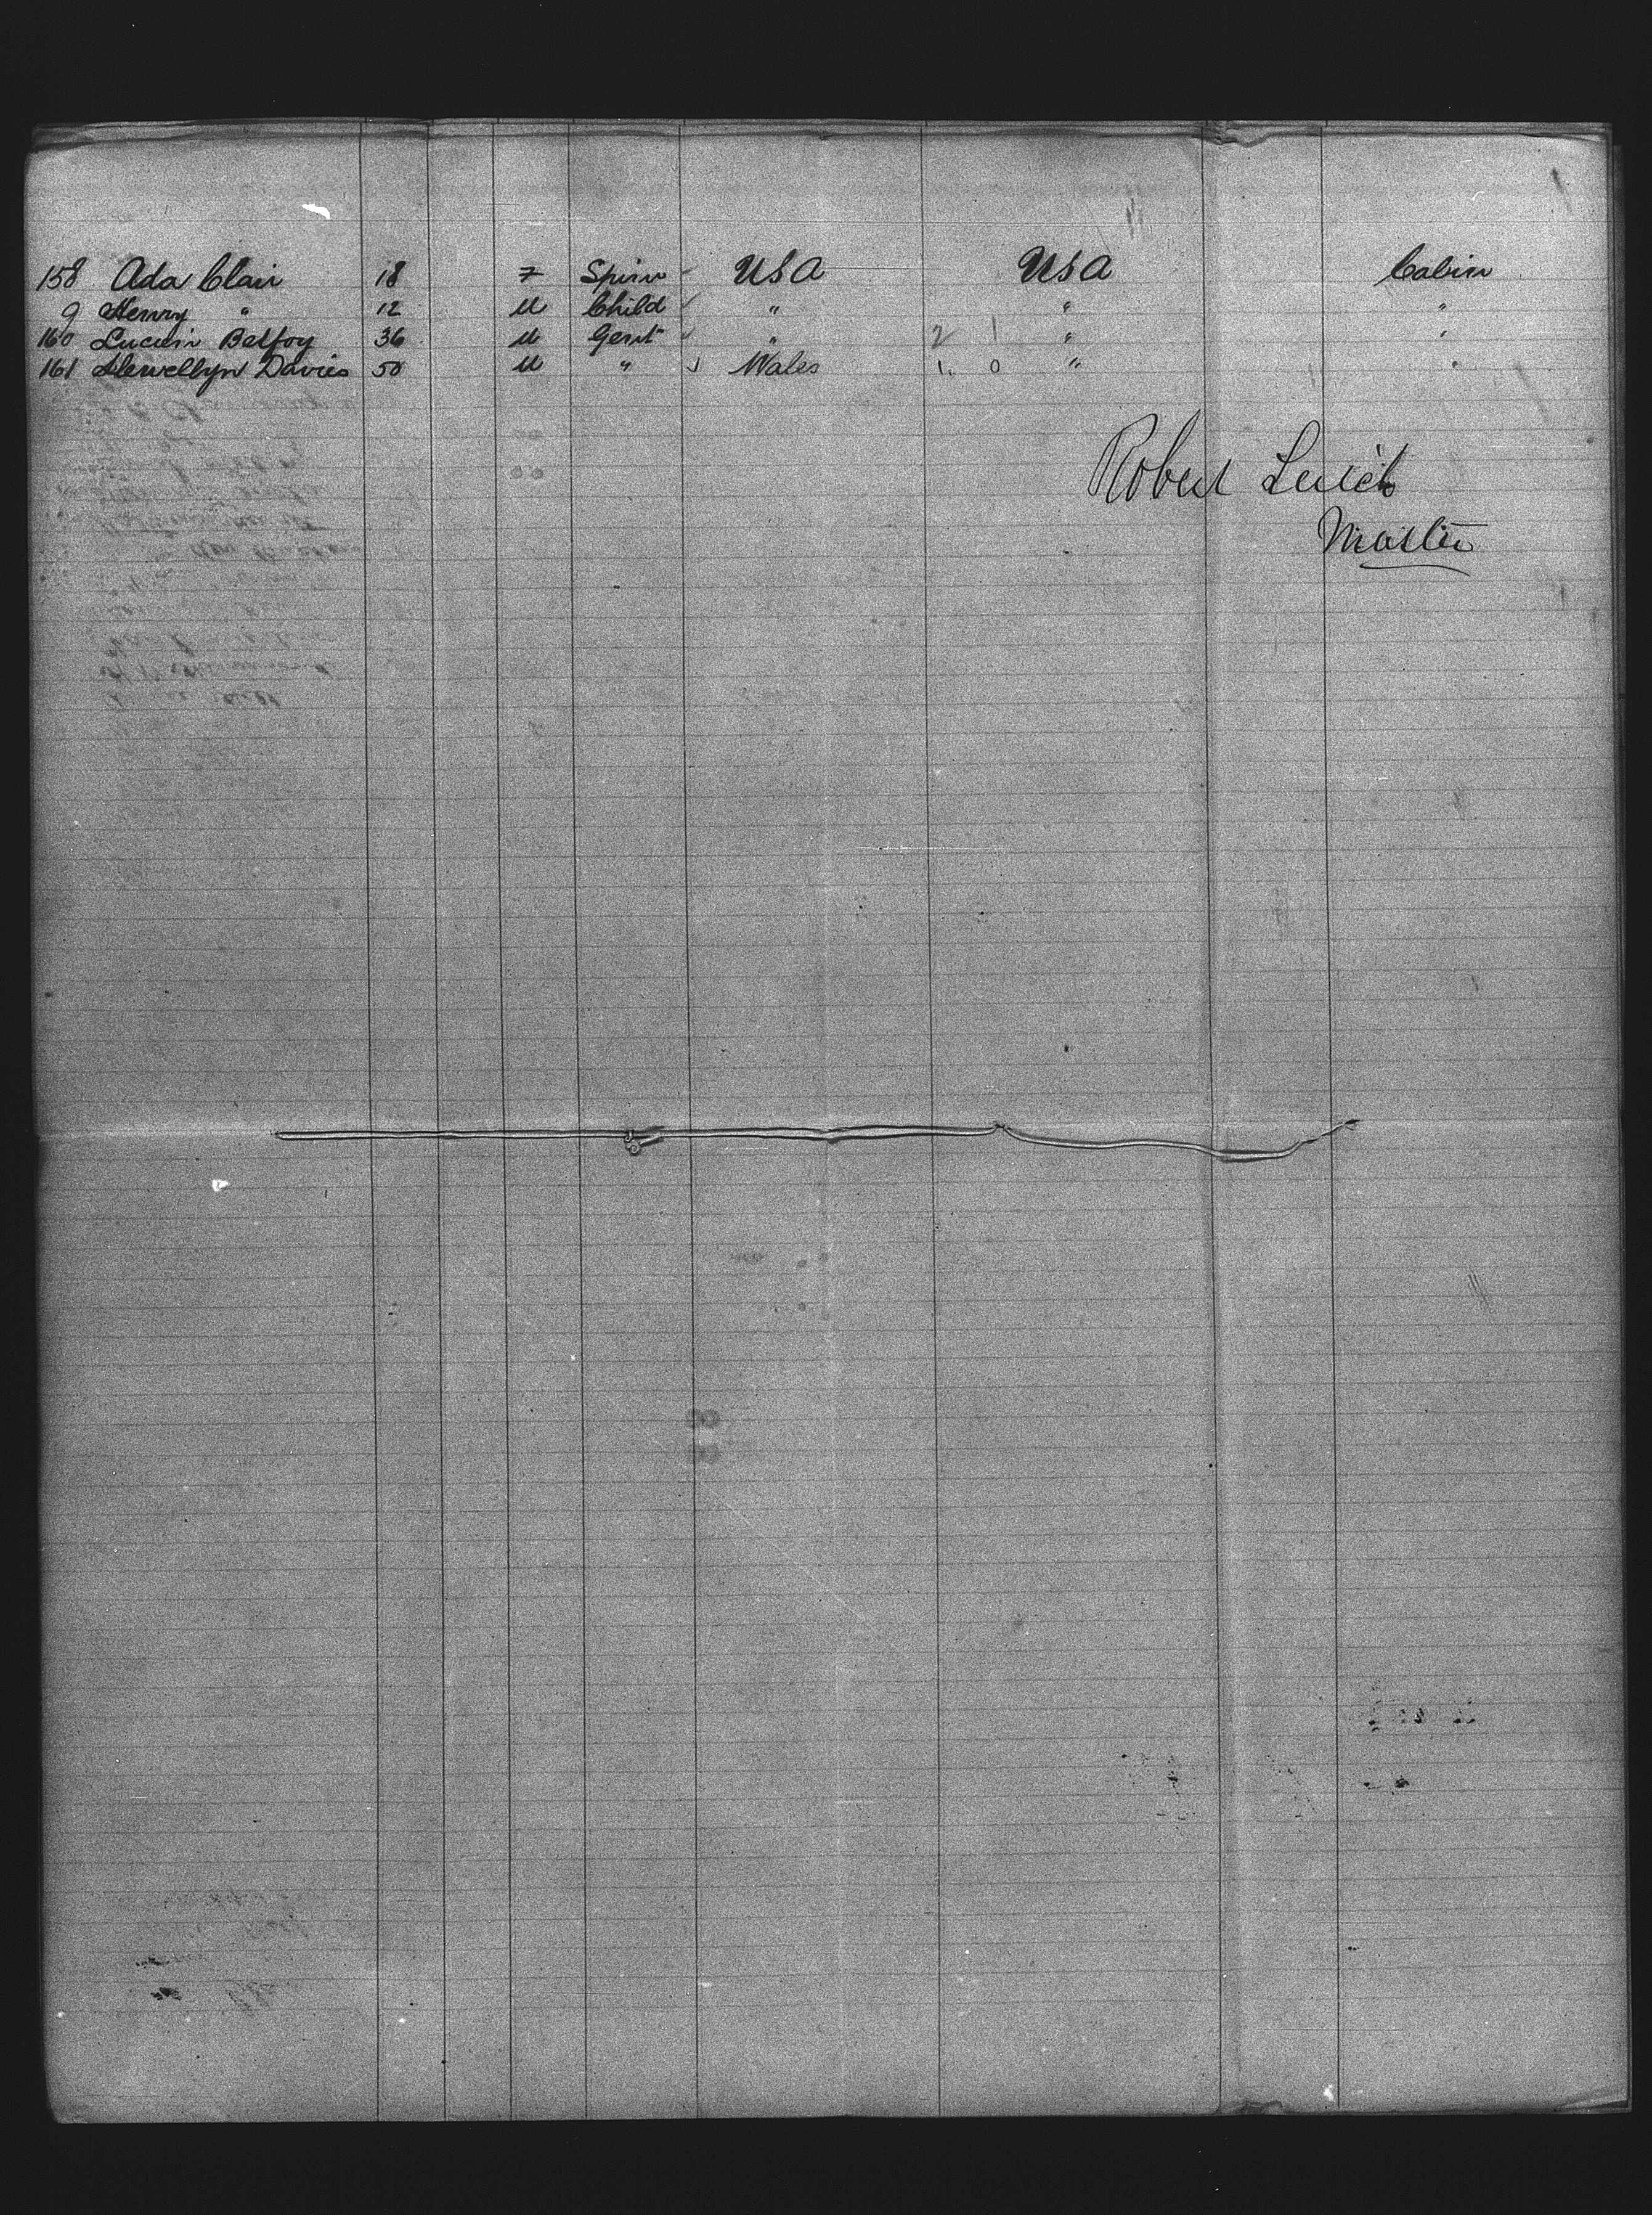 158 Ada Clair 18 F Spinr USA USA Cabin
9 Henry " 12 M Child " " "
160 Lucien Belfoy 36 M Gent " 2 1 " "
161 Llewellyn Davies 50 M " Wales 1. 0 " "
Robert Leitch
Master